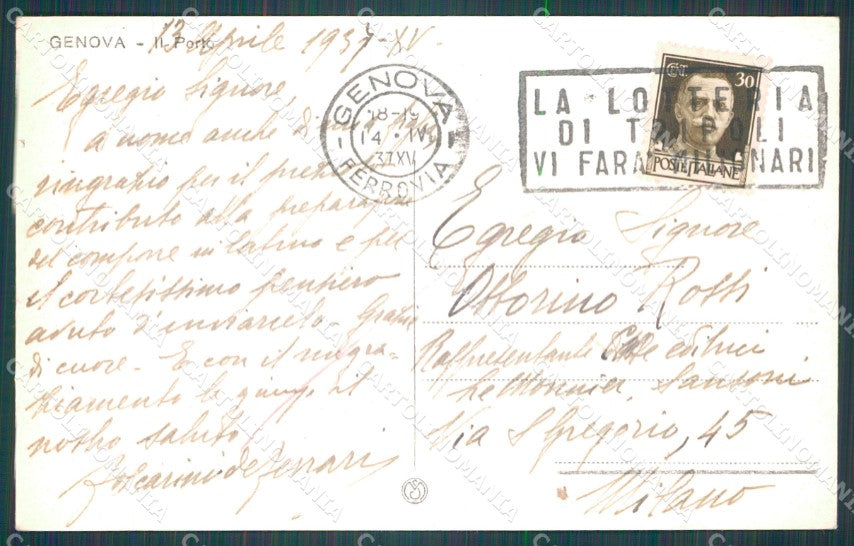 GENOVA - Il Porto
13 Aprile 1937-XV.
Egregio Signore,
a nome anche di
ringrazio per il
contributo alla preparazione
del in latino e per
il cortesissimo pensiero
avuto d'inviarcelo. Grazie
di cuore. E con il ringra-
ziamento le giunga il
nostro saluto
GENOVA
18-19
14 · IV
37XV
FERROVIA
30
POSTE ITALIANE
LA LOTTERIA
DI TRIPOLI
VI FARA MILIONARI
Egregio Signore
Ottorino Rossi
Rappresentante Case editrici
Le Monnier, Sansoni
Via S Gregorio, 45
Milano
CARTOLINOMANIA